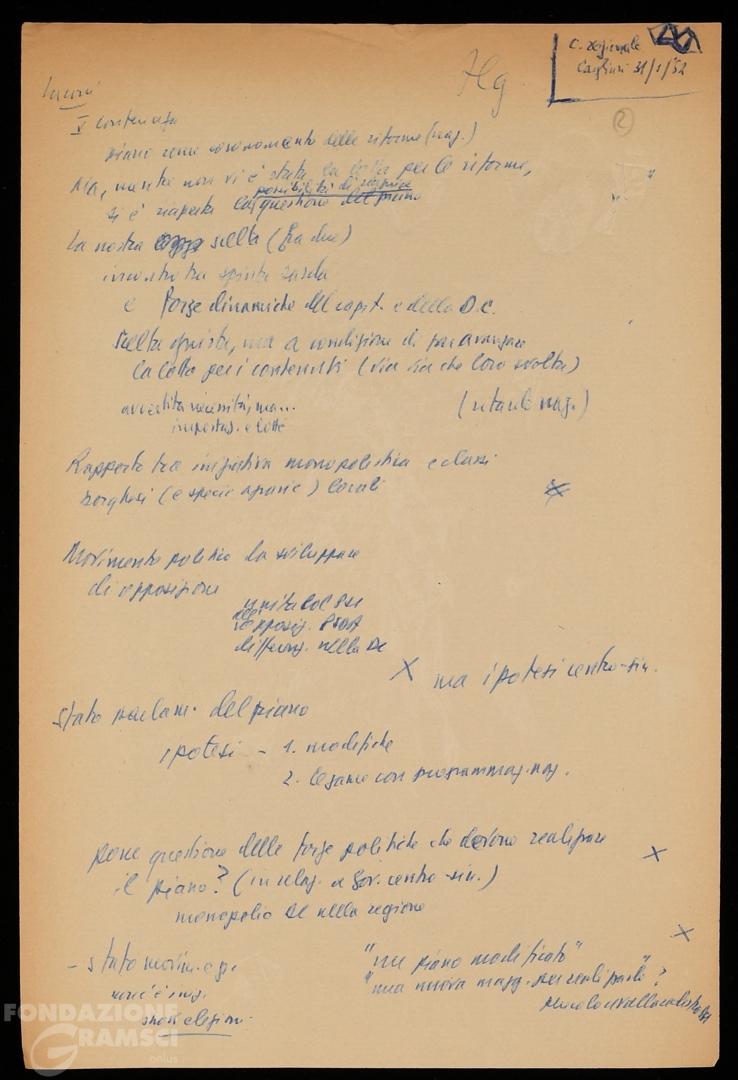 C. regionale
Cagliari 31/1/62
2
Laconi
V contenuto
piano come coronamento delle riforme (naz.)
Ma, mentre non vi è stata la lotta per le riforme,
possibilità di
si è riaperta la questione del piano
La nostra scelta (fra due)
incontro tra spinta sarda
e forze dinamiche del capit. e della D.C.
scelta giusta, ma a condizione di far avanzare
la lotta per i contenuti (via via che loro svolta)
avvertita necessità, man..
impostaz. e lotte
(ritardo naz.)
Rapporto tra iniziativa monopolistica e classi
borghesi (e specie agrarie) locali
Movimento politico da sviluppare
di opposizione
unità col PSI
opposiz. PSdA
differenz. nella DC
ma ipotesi centro-sin.
Stato parlam. del piano
ipotesi - 1. modifiche
2. legame con programmaz. naz.
pone questione delle forze politiche che devono realizzare
il piano? (in relaz. a gov. centro-sin.)
monopolio DC nella regione
- stato movim. op.
"un piano modificato"
"una nuova magg. per realizzarlo"?
FONDAZIONE
GRAMSCI
onlus